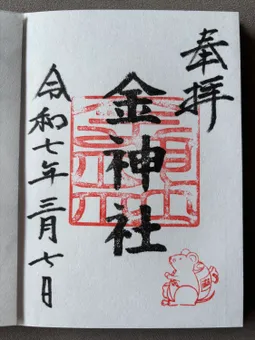 奉拝
金神社
令和七年三月七日